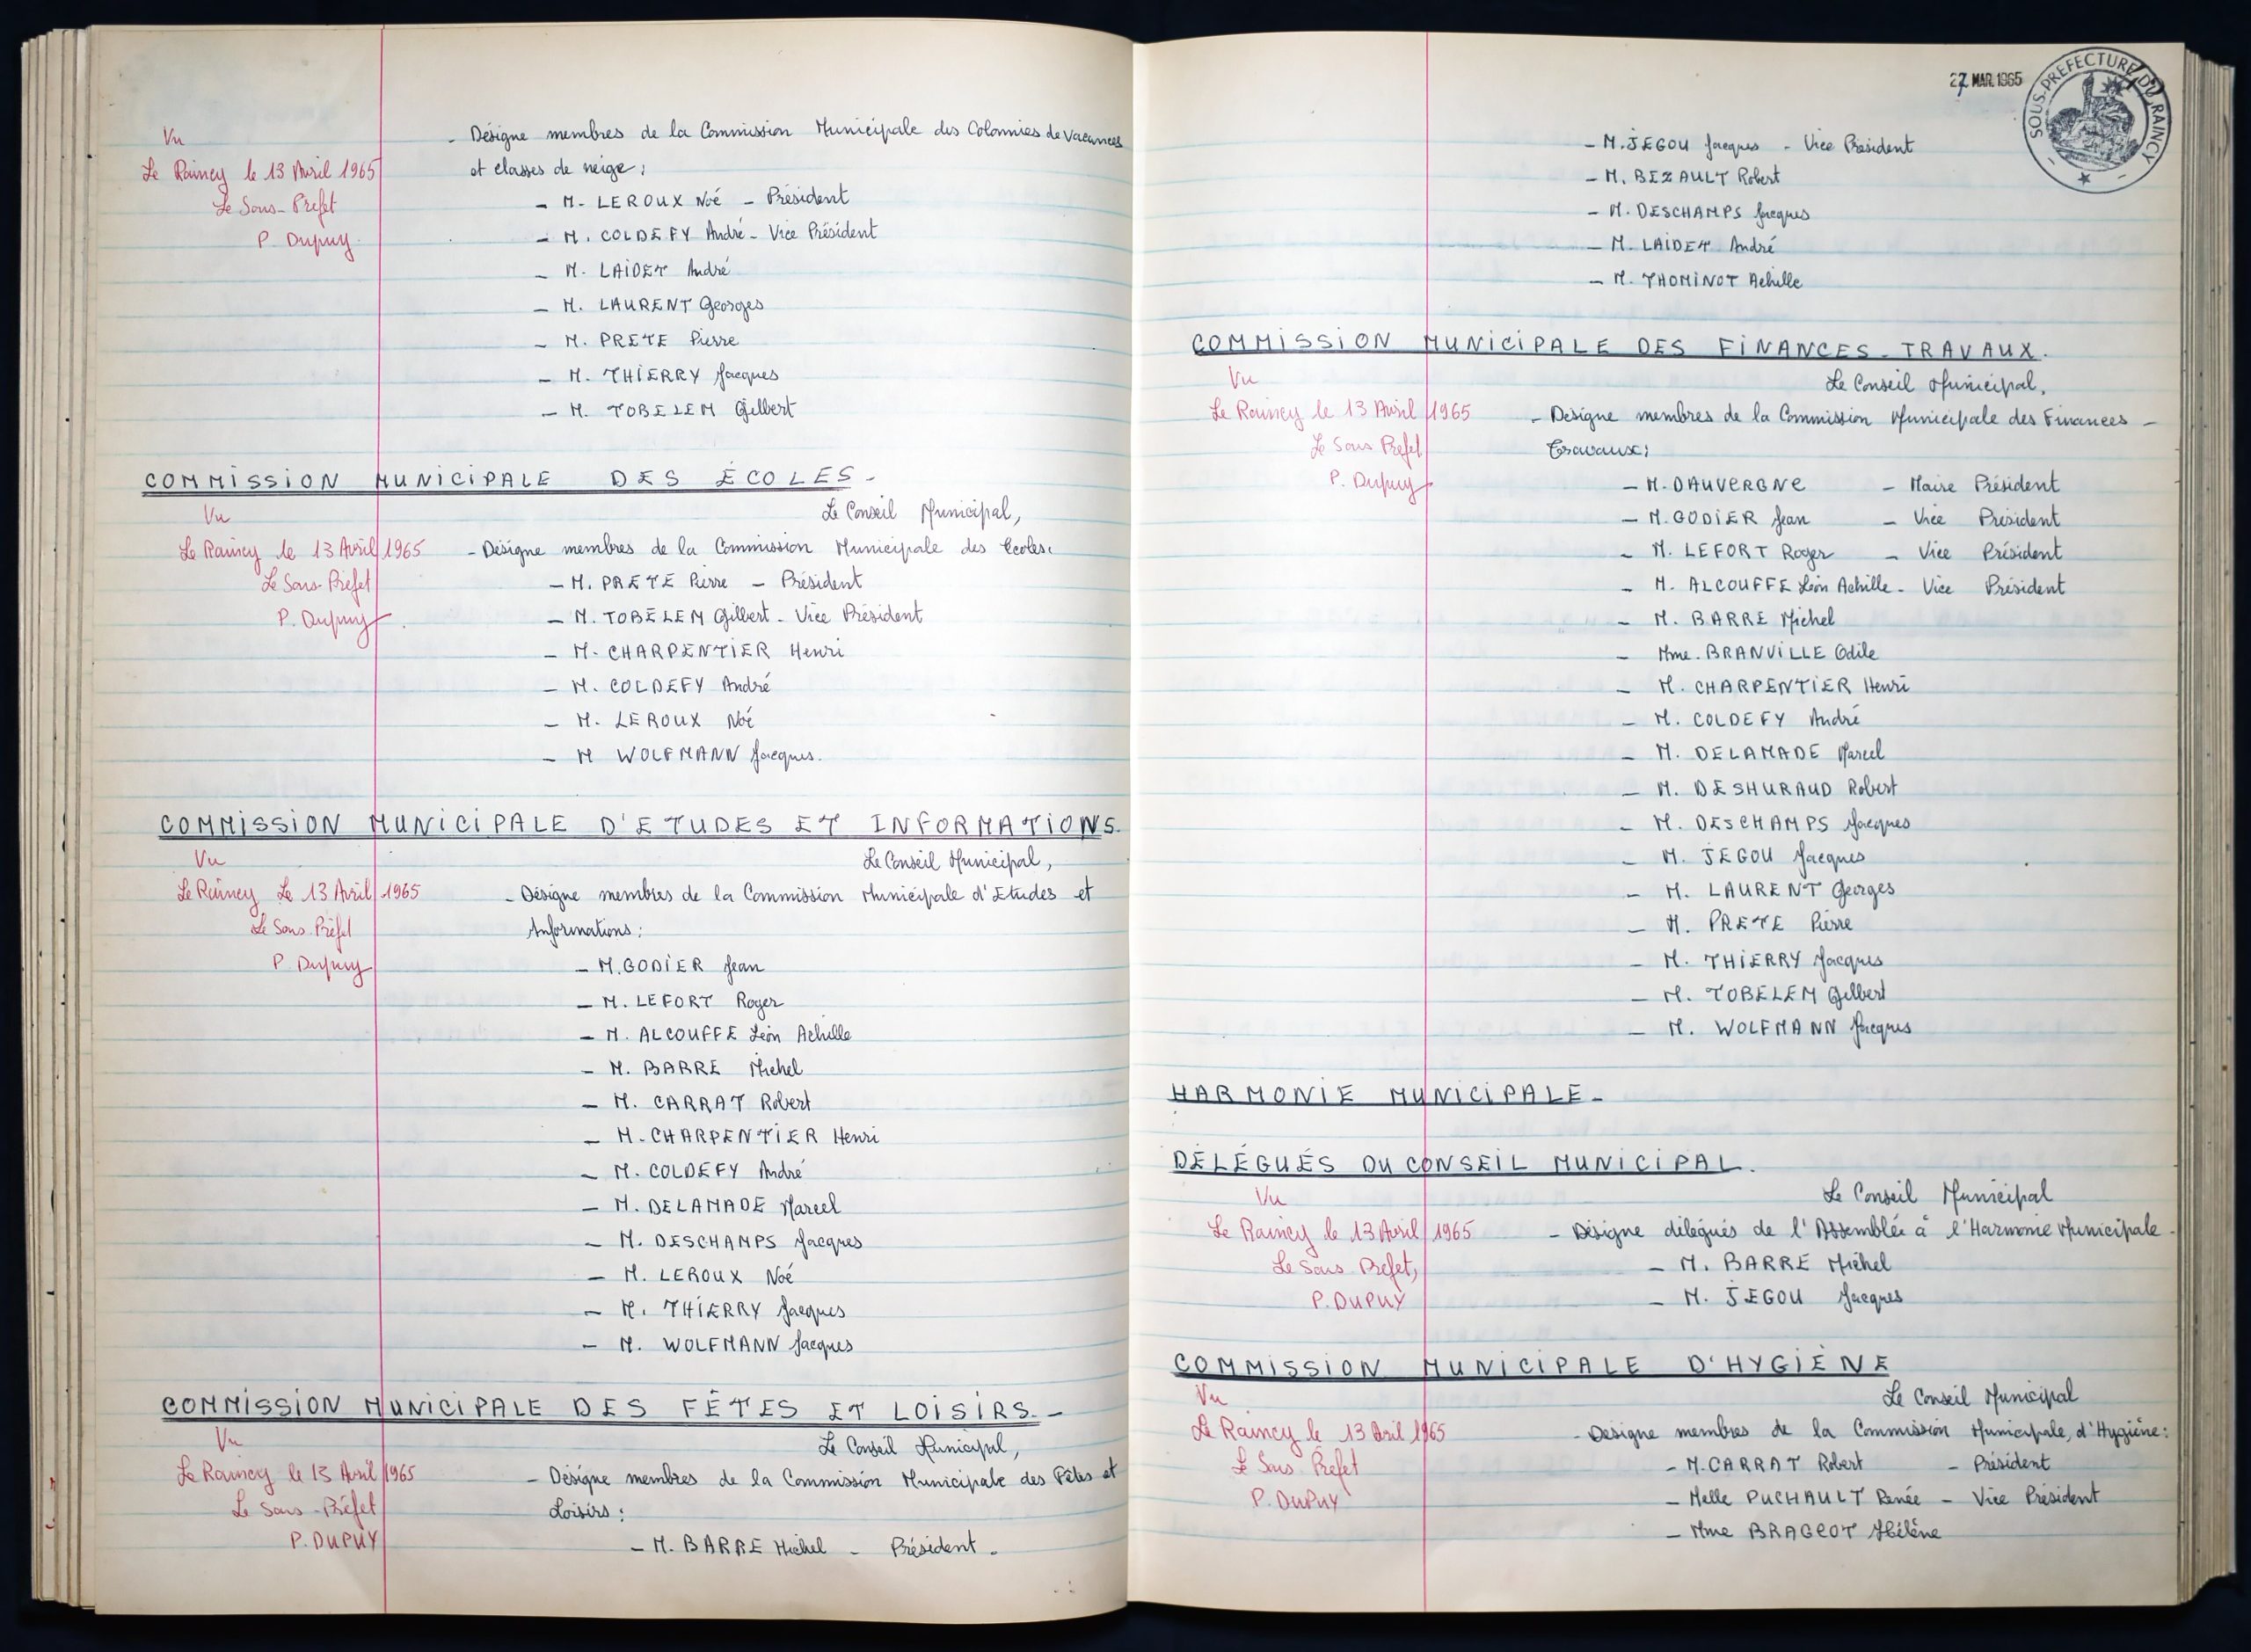 Vu
Le Raincy le 13 Avril 1965
Le Sous-Préfet
P. Dupuy.
- Désigne membres de la Commission Municipale des Colonnies de Vacances
et classes de neige :
- M. LEROUX Noé - Président
- M. COLDEFY André - Vice Président
- M. LAIDET André
- M. LAURENT Georges
- M. PRETE Pierre
- M. THIERRY Jacques
- M. TOBELEM Gilbert
COMMISSION MUNICIPALE DES ÉCOLES -
Vu
Le Conseil Municipal,
Le Raincy le 13 Avril 1965
- Désigne membres de la Commission Municipale des Ecoles.
Le Sous-Préfet
- M. PRETE Pierre - Président
P. Dupuy.
- M. TOBELEM Gilbert - Vice Président
- M. CHARPENTIER Henri
- M. COLDEFY André
- M. LEROUX Noé
- M WOLFMANN Jacques.
COMMISSION MUNICIPALE D'ETUDES ET INFORMATIONS.
Vu
Le Conseil Municipal,
Le Raincy Le 13 Avril 1965
- Désigne membres de la Commission Municipale d'Etudes et
Le Sous-Préfet
Informations :
P Dupuy
- M. GODIER Jean
- M. LEFORT Roger
- M. ALCOUFFE Léon Achille
- M. BARRE Michel
- M. CARRAT Robert
- M. CHARPENTIER Henri
- M. COLDEFY André
- M. DELAMADE Marcel
- M. DESCHAMPS Jacques
- M. LEROUX Noé
- M. THIERRY Jacques
- M. WOLFMANN Jacques
COMMISSION MUNICIPALE DES FÊTES ET LOISIRS. -
Vu
Le Conseil Municipal,
Le Raincy le 13 Avril 1965
- Désigne membres de la Commission Municipale des Fêtes et
Le Sous-Préfet
Loisirs :
P. DUPUY
- M. BARRE Michel - Président -
27 MAR. 1965
SOUS-PREFECTURE DU RAINCY
- M. JEGOU Jacques - Vice Président
- M. BEZAULT Robert
- M. DESCHAMPS Jacques
- M. LAIDET André
- M. THOMINOT Achille
COMMISSION MUNICIPALE DES FINANCES - TRAVAUX.
Vu
Le Conseil Municipal,
Le Raincy le 13 Avril 1965
- Designe membres de la Commission Municipale des Finances -
Le Sous Préfet
Travaux :
P. Dupuy
- M. DAUVERGNE - Maire Président
- M. GODIER Jean - Vice Président
- M. LEFORT Roger - Vice Président
- M. ALCOUFFE Léon Achille - Vice Président
- M. BARRE Michel
- Mme. BRANVILLE Odile
- M. CHARPENTIER Henri
- M. COLDEFY André
- M. DELAMADE Marcel
- M. DESHURAUD Robert
- M. DESCHAMPS Jacques
- M. JEGOU Jacques
- M. LAURENT Georges
- M. PRETE Pierre
- M. THIERRY Jacques
- M. TOBELEM Gilbert
- M. WOLFMANN Jacques
HARMONIE MUNICIPALE -
DÉLÉGUÉS DU CONSEIL MUNICIPAL.
Vu
Le Conseil Municipal
Le Raincy le 13 Avril 1965
- Désigne délégués de l'Assemblée à l'Harmonie Municipale -
Le Sous Préfet,
- M. BARRE Michel
P. DUPUY
- M. JEGOU Jacques
COMMISSION MUNICIPALE D'HYGIÈNE
Vu
Le Conseil Municipal
Le Raincy le 13 Avril 1965
- Désigne membres de la Commission Municipale, d'Hygiène :
Le Sous Préfet
- M. CARRAT Robert - Président
P. DUPUY
- Melle PUCHAULT Renée - Vice Président
- Mme BRAGEOT Hélène